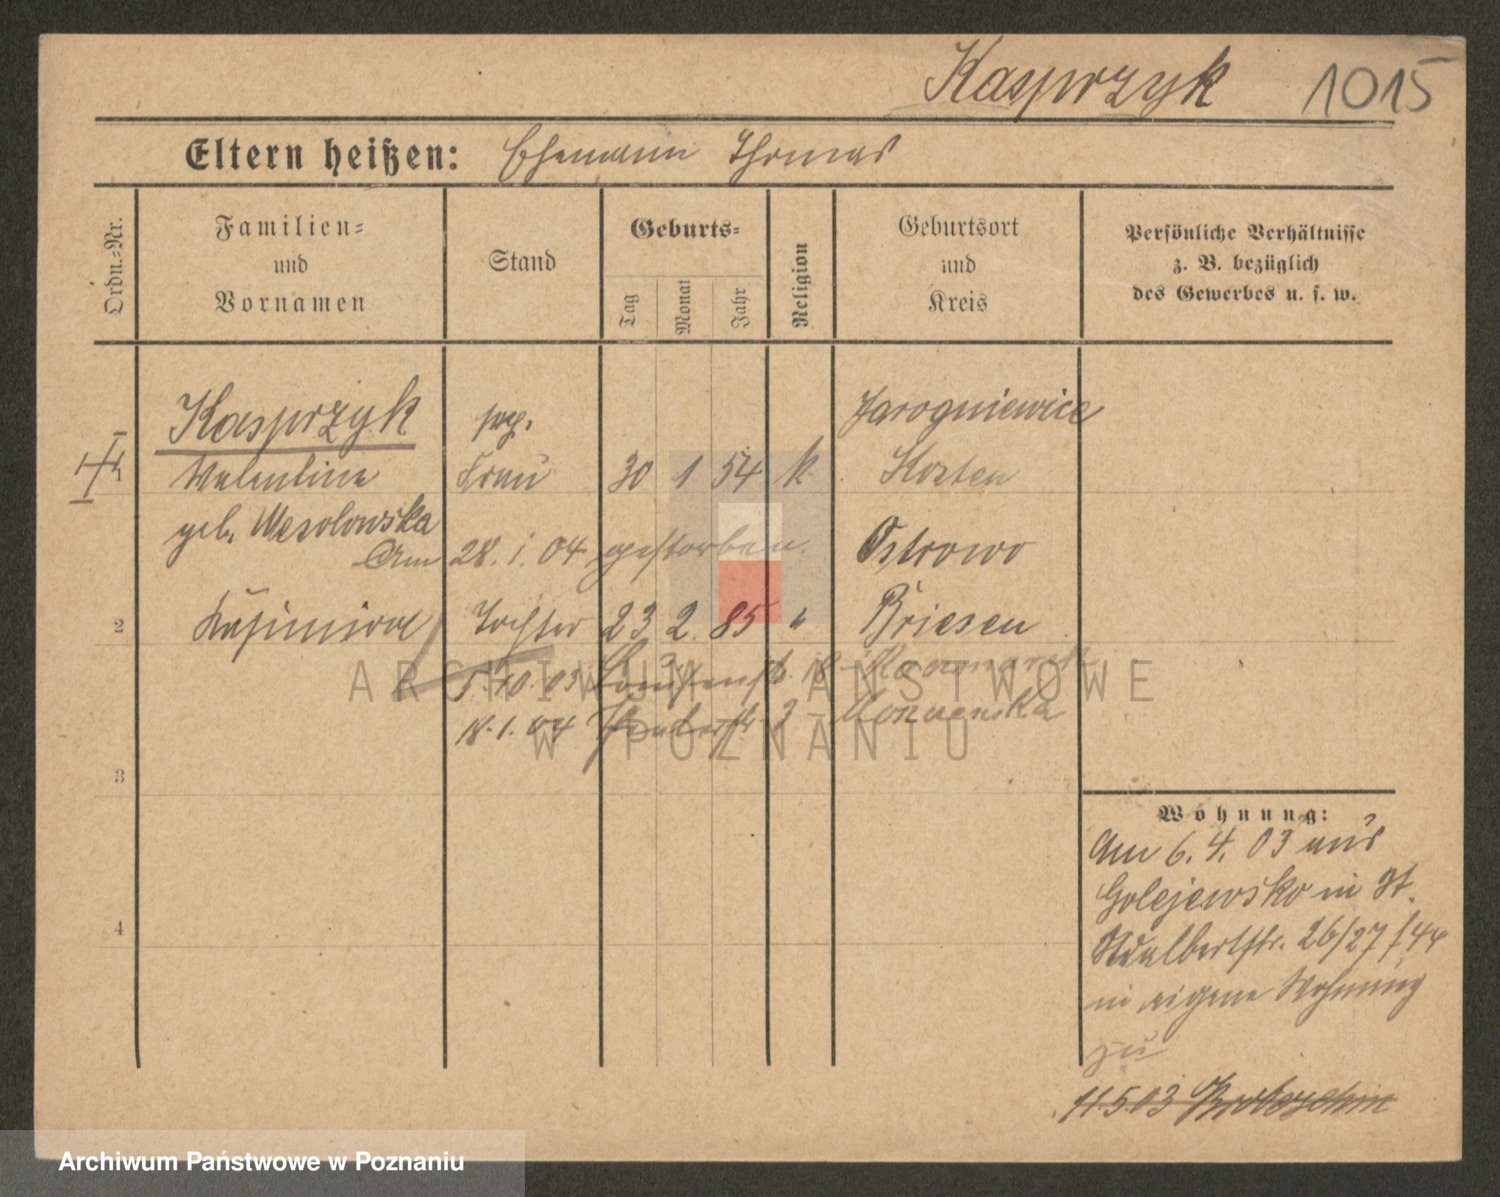 Kasprzyk 1015
Eltern heißen: Ehemann Thomas
Ordn.-Nr.
Familien- und Vornamen
Stand
Geburts-
Tag Monat Jahr
Religion
Geburtsort und Kreis
Persönliche Verhältnisse
z. B. bezüglich
des Gewerbes u. s. w.
Kasprzyk Jarogniewice
Valentine Frau 30 1 54 k. Kosten
geb. Wesolowska Ostrowo
Am 28. 1. 04 gestorben.
2 Kasimira Tochter 23 2 85 " Briesen
5. 10. 03 18
18. 1. 04 3
3
4
Wohnung:
Am 6. 4. 03 aus
Golejewsko in St.
Adalbertstr. 26/27
in eigene Wohnung
zu
11.5.03
ARCHIWUM PAŃSTWOWE
W POZNANIU
Archiwum Państwowe w Poznaniu